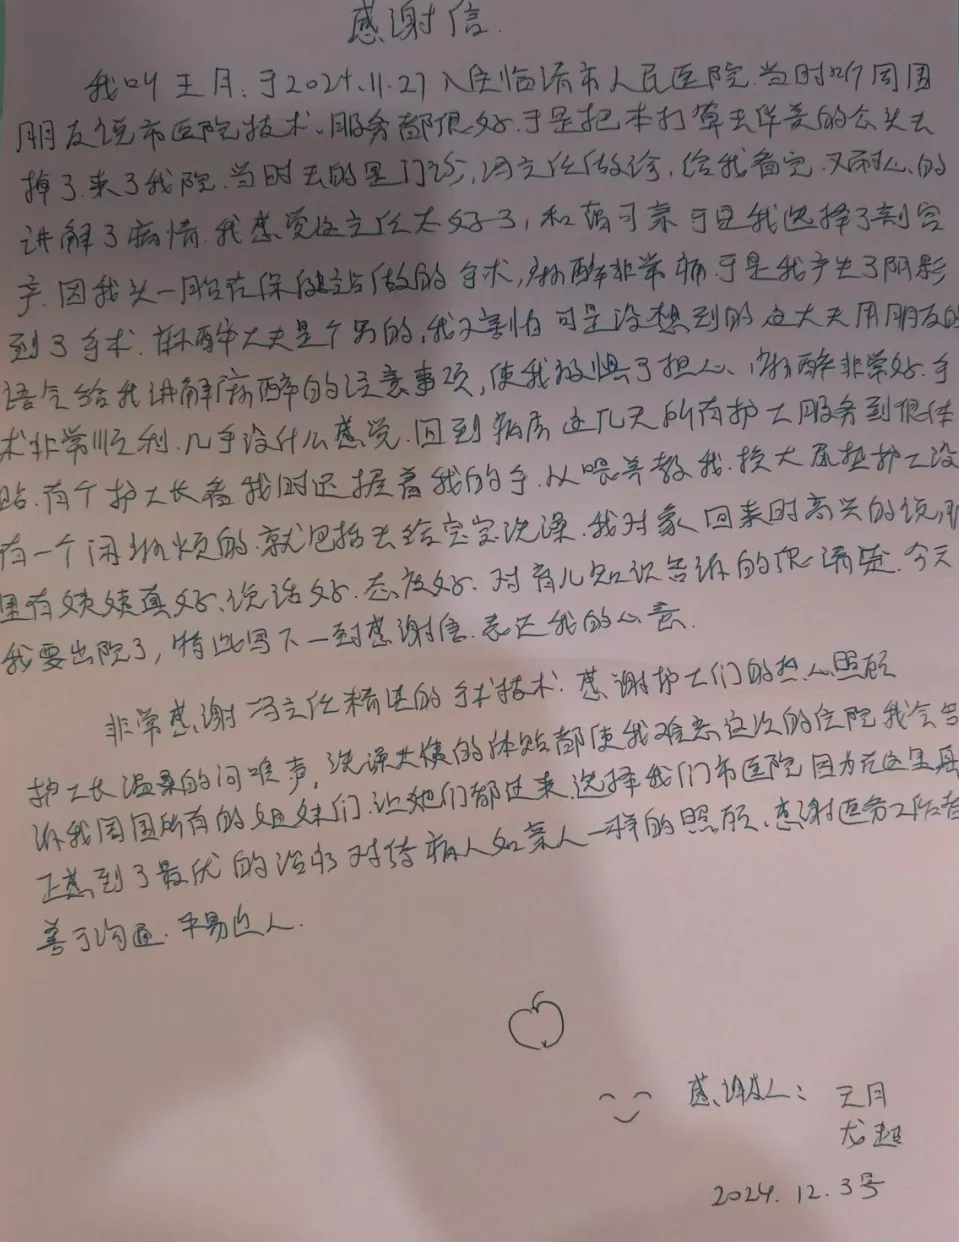 感谢信.
我叫王月.于2024.11.27入住临沂市人民医院.当时听周围
朋友说市医院技术、服务都很好.于是把本打算去的念头去
掉了.来了我院.当时去的是门诊,冯主任做诊,给我看完.又耐心的
讲解了病情.我感觉这主任太好了,和蔼可亲于是我选择了剖宫
产.因我头一胎在保健站做的手术,麻醉非常痛于是我产生了阴影
到了手术.麻醉大夫是个男的,我又害怕可是没想到的这大夫用朋友的
语气给我讲解麻醉的注意事项,使我放惧了担心、麻醉非常好.手
术非常顺利.几乎没什么感觉.回到病房这几天所有护士服务到很体
贴.有个护士长看我时还握着我的手.从喂养教我.换大尿垫护士没
有一个闲烦的.就包括去给宝宝洗澡.我对象回来时高兴的说,那
里有姨姨真好、说话好.态度好.对育儿知识告诉的很清楚.今天
我要出院了,特此写下一封感谢信.表达我的心意.
非常感谢冯主任精湛的手术技术.感谢护士们的热心照顾
护士长温柔的问候声,洗澡大姨的体贴都使我难忘这次的住院我会告
诉我周围所有的姐妹们.让她们都过来.选择我们市医院因为在这里真
正感到了最优的治疗对待病人如亲人一样的照顾、感谢医务工作者
善于沟通.平易近人.
感谢人:王月
尤超
2024.12.3号